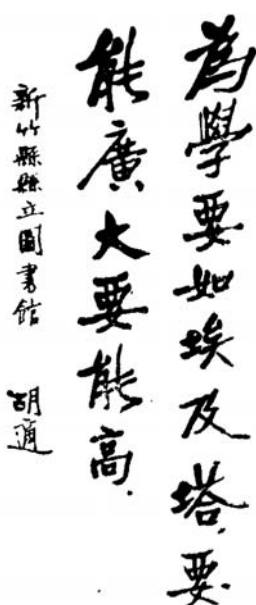 為學要如埃及塔,要
能廣大要能高.
新竹縣縣立圖書館 胡適